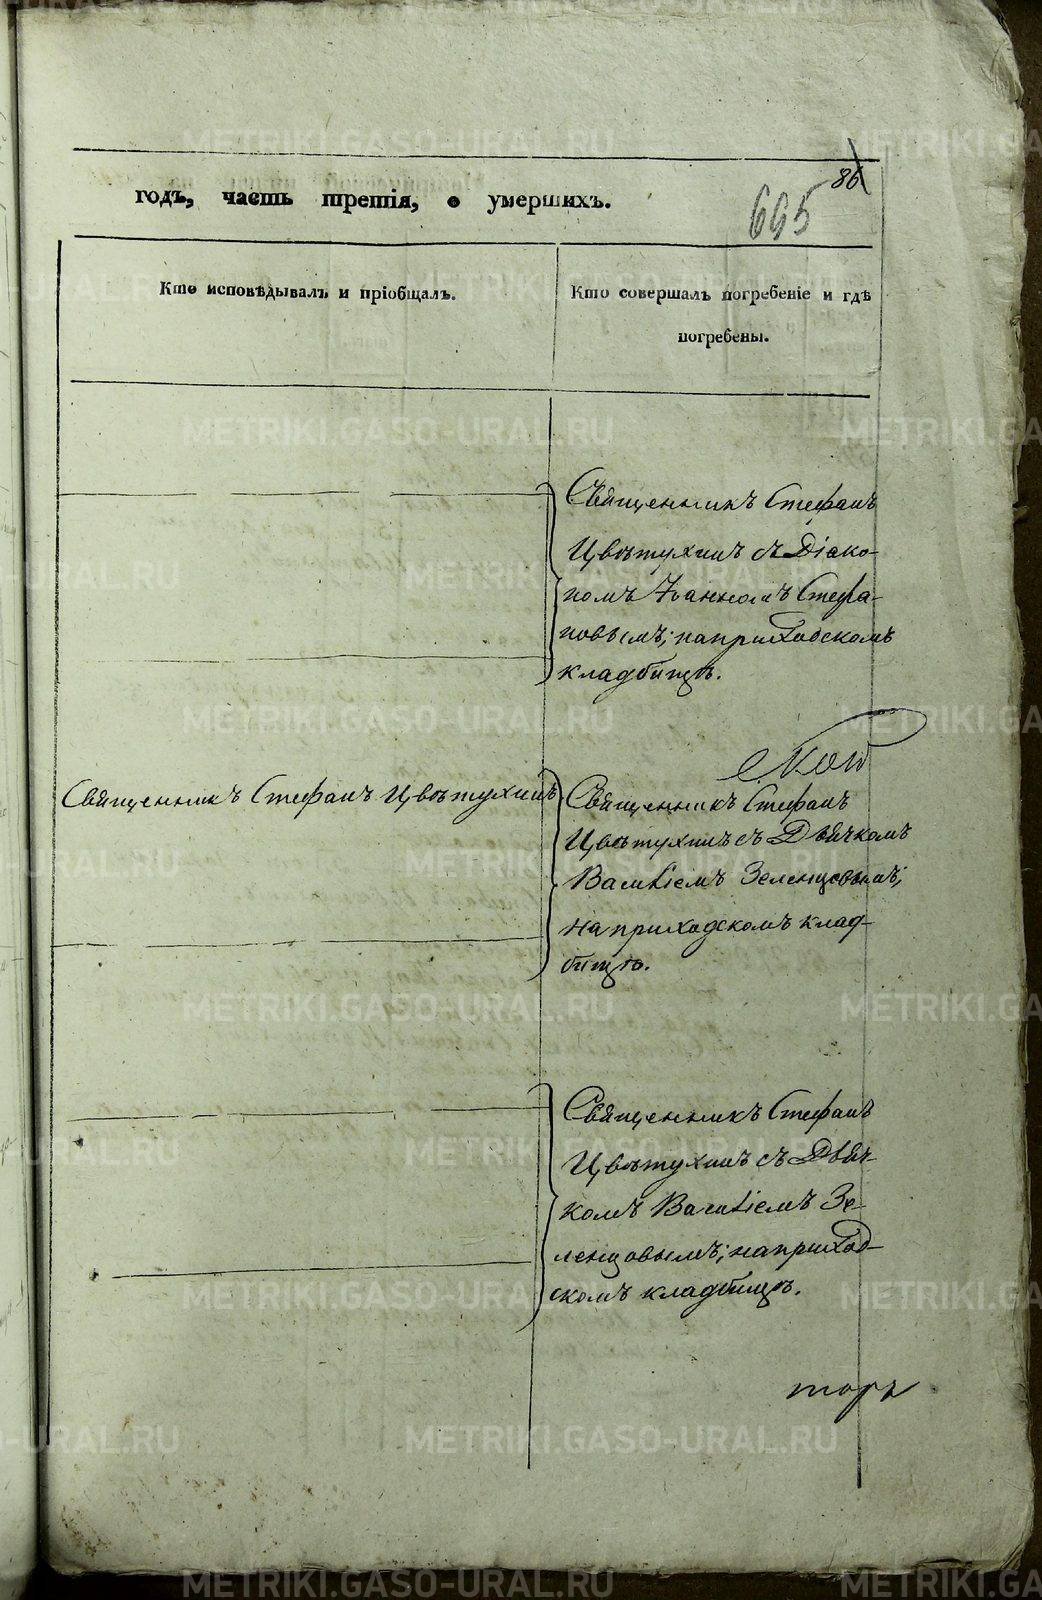 86
695
годъ, часть третія, о умершихъ.
Кто исповѣдывалъ и пріобщалъ.
Кто совершалъ погребеніе и гдѣ
погребены.
Священникъ Стефанъ
Цвѣтухинъ съ Діако-
номъ Іоанномъ Стефа-
новымъ; на приходскомъ
кладбищѣ.
Священникъ Стефанъ Цвѣтухинъ
Священникъ Стефанъ
Цвѣтухинъ съ Дьячкомъ
Василіемъ Зеленцовымъ;
на приходскомъ клад-
бищѣ.
Священникъ Стефанъ
Цвѣтухинъ съ Дьяч-
комъ Василіемъ Зе-
ленцовымъ; на приход-
скомъ кладбищѣ.
торъ
METRIKI.GASO-URAL.RU